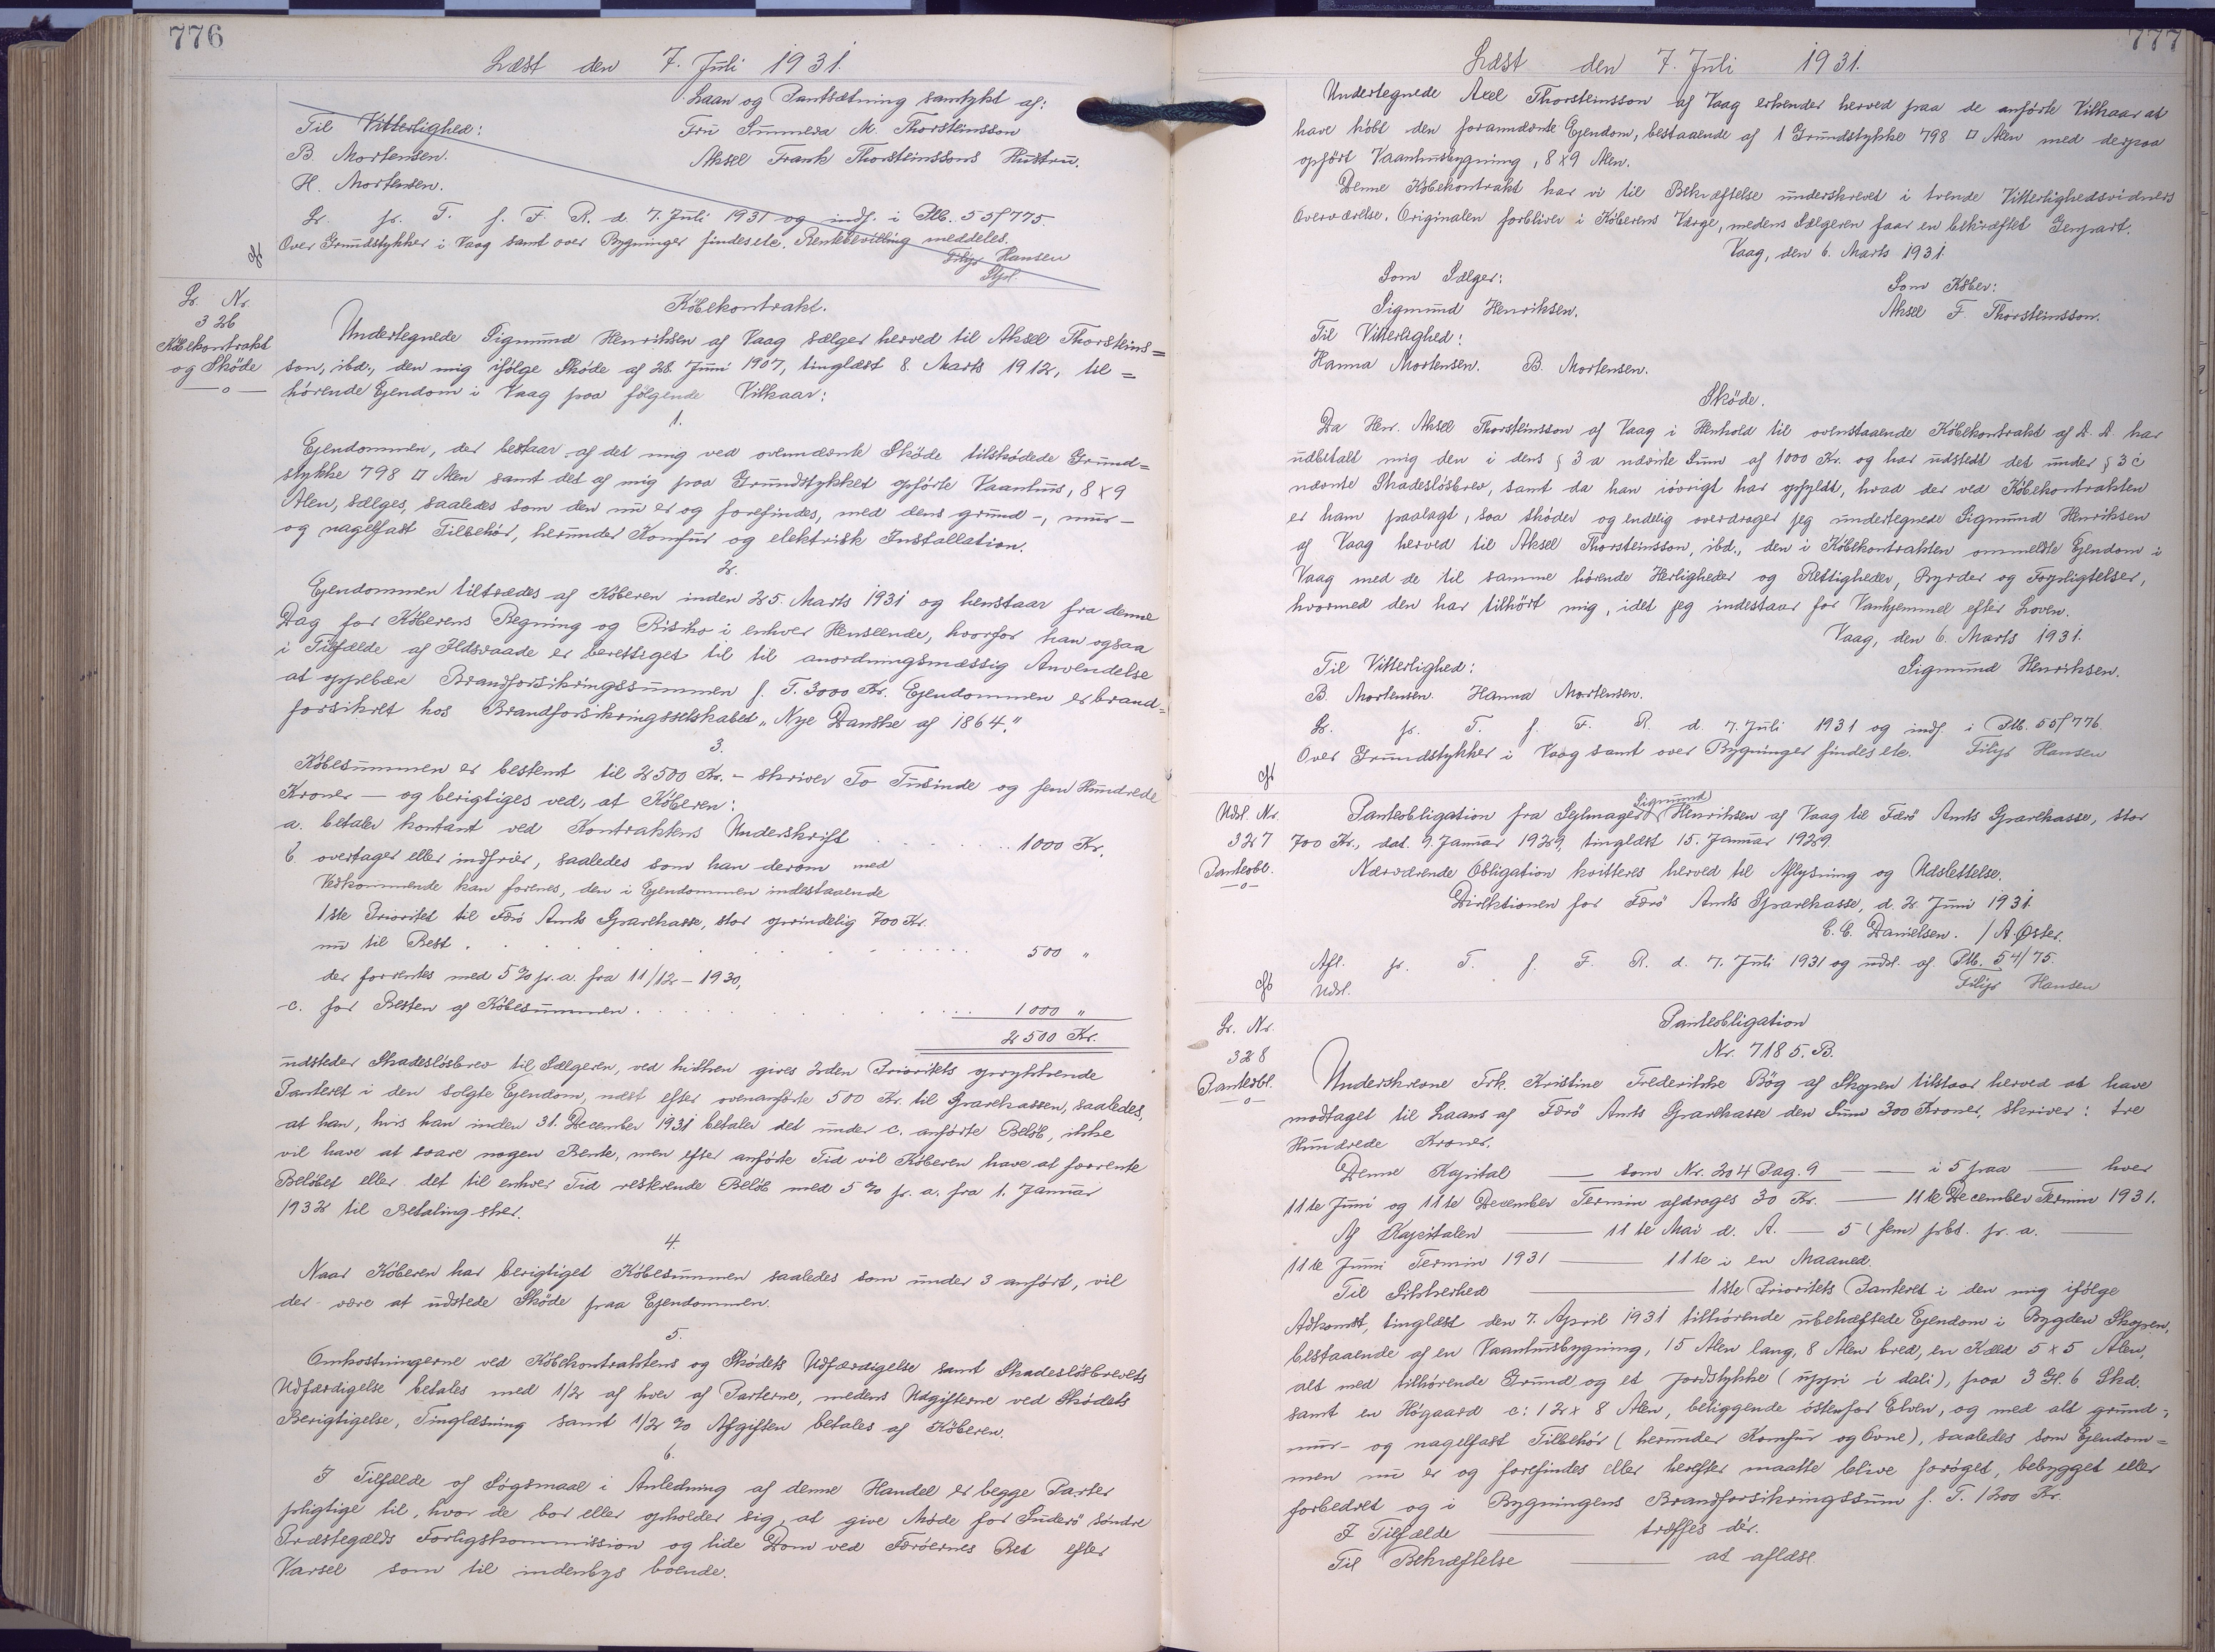 776
Læst den 7. Juli 1931.
Laan og Pantsætning samtykt af:
Til Vitterlighed:
Fru Sunneva M. Thorsteinsson
B. Mortensen.
Aksel Frank Thorsteinssons Hustru.
H. Mortensen.
Lr. pr. T. f. F. R. d. 7. Juli 1931 og indf. i Ptb. 55f775.
Over Grundstykker i Vaag samt over Bygninger findes etc. Rentebevilling meddeles.
Filip Hansen
Lr. Nr.
326
Købekontrakt
og Skøde
—o—
Købekontrakt.
Undertegnede Sigmund Henriksen af Vaag sælger herved til Aksel Thorsteins=
son, ibd., den mig ifølge Skøde af 28. Juni 1907, tinglæst 8. Marts 1912, til=
hørende Ejendom i Vaag paa følgende Vilkaar:
1.
Ejendommen, der bestaar af det mig ved ovennævnte Skøde tilskødede Grund=
stykke 798 □ Alen samt det af mig paa Grundstykket opførte Vaanhus, 8 x 9
Alen, sælges, saaledes som den nu er og forefindes, med dens grund-, mur-
og nagelfast Tilbehør, herunder Komfur og elektrisk Installation.
2.
Ejendommen tiltrædes af Køberen inden 25. Marts 1931 og henstaar fra denne
Dag for Køberens Regning og Risiko i enhver Henseende, hvorfor han ogsaa
i Tilfælde af Ildsvaade er berettiget til til anordningsmæssig Anvendelse
at oppebære Brandforsikringssummen f. T. 3000 Kr. Ejendommen er brand=
forsikret hos Brandforsikringsselskabet „Nye Danske af 1864."
3.
Købesummen er bestemt til 2500 Kr. - skriver To Tusinde og fem Hundrede
Kroner — og berigtiges ved, at Køberen:
a. betaler kontant ved Kontraktens Underskrift . . . . . . 1000 Kr.
b. overtager eller indfrier, saaledes som han derom med
Vedkommende kan forenes, den i Ejendommen indestaaende
1ste Prioritet til Færø Amts Sparekasse, stor oprindelig 700 Kr.
nu til Rest . . . . . . . . . . 500 "
der forrentes med 5 % p. a. fra 11/12 - 1930,
c. for Resten af Købesummen . . . . . . . . 1000 "
2500 Kr.
udsteder Skadesløsbrev til Sælgeren, ved hvilken gives 2den Prioritets oprykkende
Panteret i den solgte Ejendom, næst efter ovenanførte 500 Kr. til Sparekassen, saaledes,
at han, hvis han inden 31. December 1931 betaler det under c. anførte Beløb, ikke
vil have at svare nogen Rente, men efter anførte Tid vil Køberen have at forrente
Beløbet eller det til enhver Tid resterende Beløb med 5 % p. a. fra 1. Januar
1932 til Betaling sker.
4.
Naar Køberen har berigtiget Købesummen saaledes som under 3 anført, vil
der være at udstede Skøde paa Ejendommen.
5.
Omkostningerne ved Købekontraktens og Skødets Udfærdigelse samt Skadesløsbrevets
Udfærdigelse betales med 1/2 af hver af Parterne, medens Udgifterne ved Skødets
Berigtigelse, Tinglæsning samt 1/2 % Afgiften betales af Køberen.
6.
I Tilfælde af Søgsmaal i Anledning af denne Handel er begge Parter
pligtige til, hvor de bor eller opholder sig, at give Møde for Suderø søndre
Præstegælds Forligskommission og lide Dom ved Færøernes Ret efter
Varsel som til indenbys boende.
777
Læst den 7. Juli 1931.
Undertegnede Axel Thorsteinsson af Vaag erkender herved paa de anførte Vilkaar at
have købt den forannævnte Ejendom, bestaaende af 1 Grundstykke 798 □ Alen med derpaa
opført Vaanhusbygning, 8 x 9 Alen.
Denne Købekontrakt har vi til Bekræftelse underskrevet i tvende Vitterlighedsvidners
Overværelse. Originalen forbliver i Køberens Værge, medens Sælgeren faar en bekræftet Genpart.
Vaag, den 6. Marts 1931.
Som Sælger:
Som Køber:
Sigmund Henriksen.
Aksel F. Thorsteinsson.
Til Vitterlighed:
Hanna Mortensen. B. Mortensen.
Skøde.
Da Hr. Aksel Thorsteinsson af Vaag i Henhold til ovenstaaende Købekontrakt af D. D. har
udbetalt mig den i dens § 3 a nævnte Sum af 1000 Kr. og har udstedt det under § 3 c
nævnte Skadesløsbrev, samt da han iøvrigt har opfyldt, hvad der ved Købekontrakten
er ham paalagt, saa skøder og endelig overdrager jeg undertegnede Sigmund Henriksen
af Vaag herved til Aksel Thorsteinsson, ibd., den i Købekontrakten ommeldte Ejendom i
Vaag med de til samme hørende Herligheder og Rettigheder, Byrder og Forpligtelser,
hvormed den har tilhørt mig, idet jeg indestaar for Vanhjemmel efter Loven.
Vaag, den 6. Marts 1931.
Til Vitterlighed:
Sigmund Henriksen.
B. Mortensen. Hanna Mortensen.
Lr. pr. T. f. F. R. d. 7. Juli 1931 og indf. i Ptb. 55f776.
Over Grundstykker i Vaag samt over Bygninger findes etc. Filip Hansen
Udsl. Nr.
327
Panteobl.
—o—
Sigmund
Panteobligation fra Sejlmager Henriksen af Vaag til Færø Amts Sparekasse, stor
700 Kr., dat. 9. Januar 1929, tinglæst 15. Januar 1929.
Nærværende Obligation kvitteres herved til Aflysning og Udslettelse.
Direktionen for Færø Amts Sparekasse, d. 2. Juni 1931.
C. C. Danielsen. / A. Øster.
Afl. pr. T. f. F. R. d. 7. Juli 1931 og udsl. af Ptb. 54/75
Udsl.
Filip Hansen
Lr. Nr.
328
Panteobl.
—o—
Panteobligation
Nr. 7185. B.
Underskrevne Frk. Kristine Frederikke Bøg af Skopen tilstaar herved at have
modtaget til Laans af Færø Amts Sparekasse den Sum 300 Kroner, skriver: tre
Hundrede Kroner.
Denne Kapital — som Nr. 204 Pag. 9 — — i 5 paa — hver
11te Juni og 11te December Termin afdrages 30 Kr. — 11te December Termin 1931.
Af Kapitalen — 11te Mai d. A. — 5 (fem) pCt. p. a. —
11te Juni Termin 1931 — 11te i en Maaned.
Til Sikkerhed — 1ste Prioritets Panteret i den mig ifølge
Adkomst, tinglæst den 7. April 1931 tilhørende ubehæftede Ejendom i Bygden Skopen,
bestaaende af en Vaanhusbygning, 15 Alen lang, 8 Alen bred, en Kæld 5 x 5 Alen,
alt med tilhørende Grund og et Jordstykke (uppi i dali), paa 3 Gl. 6 Skd.
samt en Høgaard c: 12 x 8 Alen, beliggende østenfor Elven, og med alt grund-,
mur- og nagelfast Tilbehør (herunder Komfur og Ovne), saaledes som Ejendom=
men nu er og forefindes eller herefter maatte blive forøget, bebygget eller
forbedret og i Bygningens Brandforsikringssum f. T. 1200 Kr.
I Tilfælde — træffes dér.
Til Bekræftelse — at aflæse